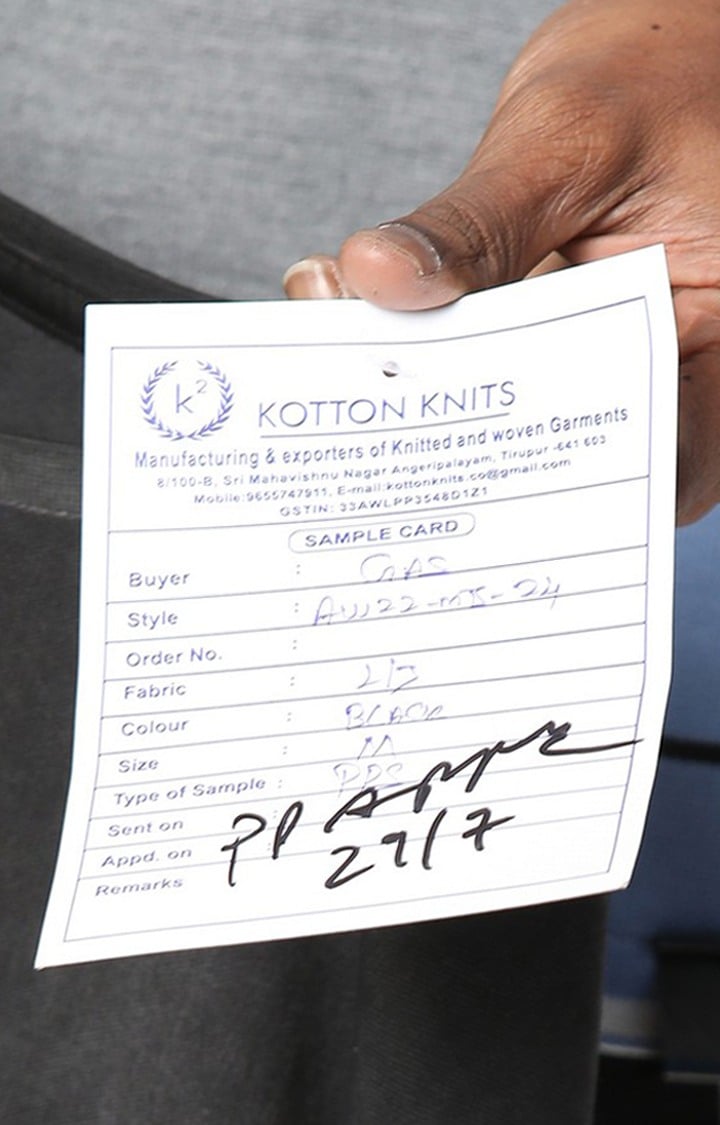 k²
KOTTON KNITS
Manufacturing & exporters of Knitted and woven Garments
8/100-B, Sri Mahavishnu Nagar Angeripalayam, Tirupur -641 603
Mobile:9655747911, E-mail:kottonknits.co@gmail.com
GSTIN: 33AWLPP3548D1Z1
SAMPLE CARD
Buyer :
Style : AW22-MJS-24
Order No. :
Fabric :
Colour : BLACK
Size : M
Type of Sample : PPS
Sent on :
Appd. on :
PP
29/7
Remarks